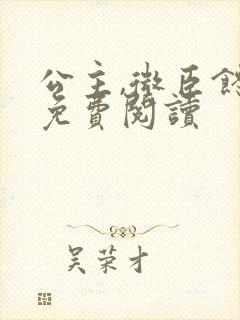 公主,微臣
免費閱讀
吴荣才